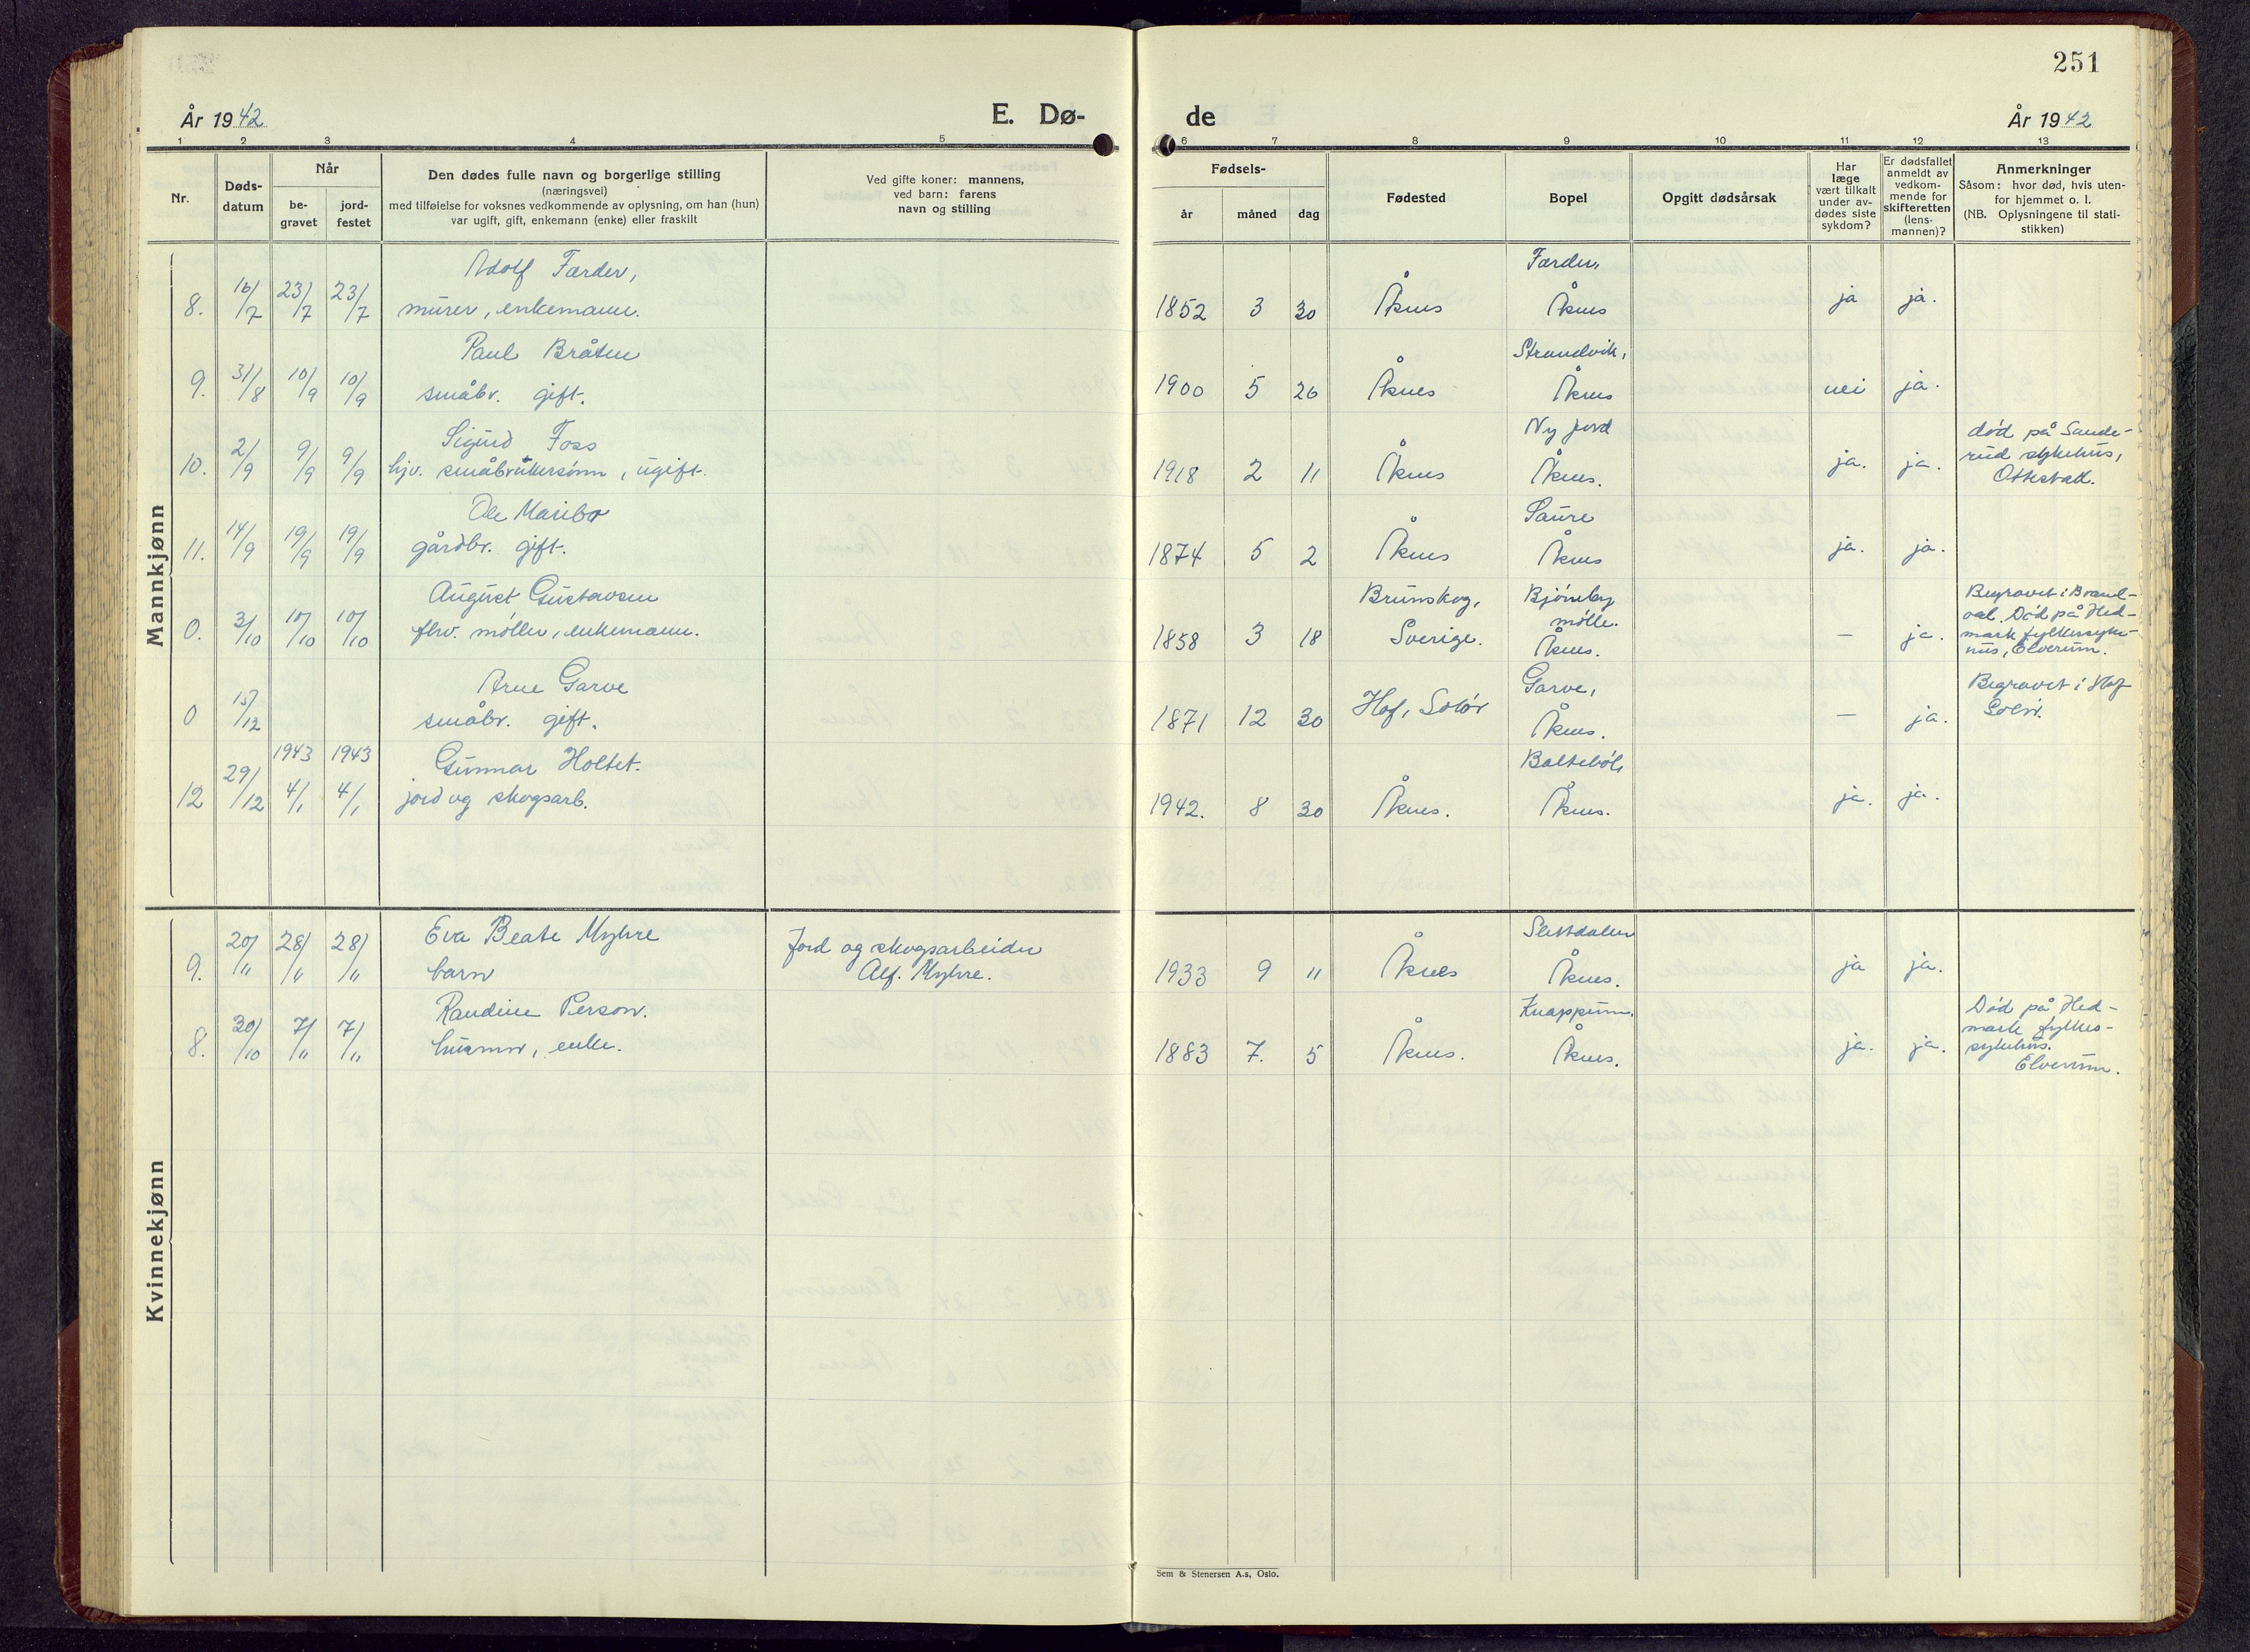 251
År 1942
E. Dø-
de
År 1942
1 2 3 4 5 6 7 8 9 10 11 12 13
Nr.
Døds-
datum
Når
be-
gravet
jord-
festet
Den dødes fulle navn og borgerlige stilling
(næringsvei)
med tilføielse for voksnes vedkommende av oplysning, om han (hun)
var ugift, gift, enkemann (enke) eller fraskilt
Ved gifte koner: mannens,
ved barn: farens
navn og stilling
Fødsels-
år måned dag
Fødested
Bopel
Opgitt dødsårsak
Har
læge
vært tilkalt
under av-
dødes siste
sykdom?
Er dødsfallet
anmeldt av
vedkom-
mende for
skifteretten
(lens-
mannen)?
Anmerkninger
Såsom: hvor død, hvis uten-
for hjemmet o. l.
(NB. Oplysningene til stati-
stikken)
Mannkjønn
Adolf Færder, Færder,
8. 16/7 23/7 23/7 murer, enkemann. 1852 3 30 Åsnes Åsnes ja ja.
Paul Bråten Strandvik,
9. 31/8 10/9 10/9 småbr. gift. 1900 5 26 Åsnes Åsnes nei ja.
Sigurd Foss Ny jord død på Sande-
10. 2/9 9/9 9/9 hjv. småbrukersønn, ugift. 1918 2 11 Åsnes Åsnes. ja. ja. rud sykehus,
Ottestad.
Ole Maribo Saure
11. 14/9 19/9 19/9 gårdbr. gift. 1874 5 2 Åsnes Åsnes ja. ja.
August Gustavsen Brunskog, Bjørneby Begravet i Brand-
mølle. val. Død på Hed-
0. 3/10 10/10 10/10 fhv. møller, enkemann. 1858 3 18 Sverige. Åsnes. — ja. mark fylkessyke-
hus, Elverum.
Arne Garve Garve, Begravet i Hof
0 15/12 småbr. gift. 1871 12 30 Hof, Solør Åsnes. — ja. Solør.
1943 1943 Gunnar Holtet. Baltebøl,
12 29/12 4/1 4/1 jord og skogsarb. 1942. 8 30 Åsnes. Åsnes. ja. ja.
Kvinnekjønn
Eva Beate Myhre Jord og skogsarbeider Slettdalen
9. 20/11 28/11 28/11 barn Alf. Myhre. 1933 9 11 Åsnes Åsnes. ja ja.
Randine Person. Knappum, Død på Hed-
8. 30/10 7/11 7/11 husmor, enke. 1883 7. 5 Åsnes. Åsnes. ja. ja. mark fylkes-
sykehus.
Elverum.
Sem & Stenersen A.s, Oslo.